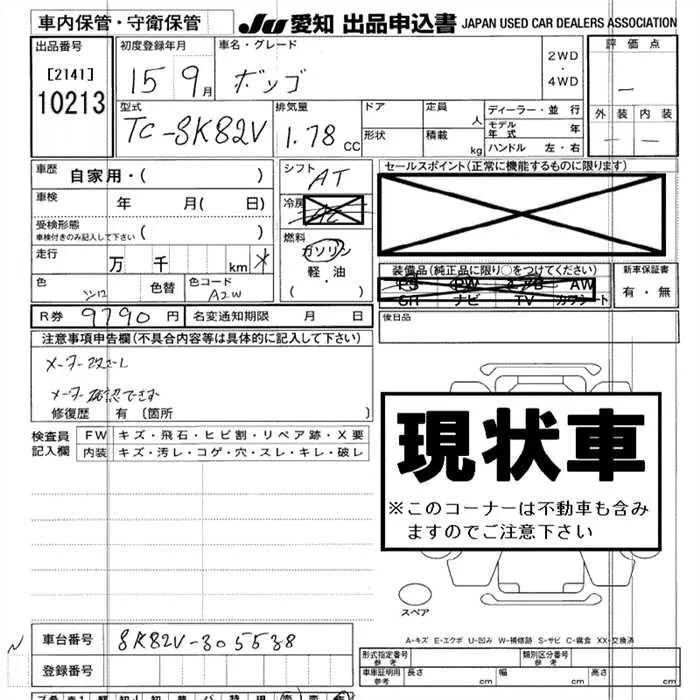 車内保管・守衛保管 JU 愛知 出品申込書 JAPAN USED CAR DEALERS ASSOCIATION
出品番号 初度登録年月 車名・グレード 2WD・4WD 評価点
[2141] 15 9月 ボンゴ —
10213
型式 排気量 ドア 定員 人 ディーラー・並行 外装 内装
TC-SK82V 1.78 CC 形状 積載 kg モデル年式 年 — —
ハンドル 左・右
車歴 自家用・( ) シフト AT セールスポイント(正常に機能するものに限ります)
車検 年 月( 日) 冷房 AC
受検形態 ( ) 燃料
車検付きのみ記入して下さい ガソリン
走行 万 千 km 軽・油 装備品(純正品に限り○をつけてください) 新車保証書
色 シロ 色替 色コード A2W ・ ( ) PS PW AW 有・無
SR ナビ TV カワシート
R券 9790円 名変通知期限 月 日 後日品
注意事項申告欄(不具合内容等は具体的に記入して下さい)
メーター改ザん
メーター確認できず
修復歴 有 〔箇所 〕
検査員記入欄 FW キズ・飛石・ヒビ割・リペア跡・X要
内装 キズ・汚レ・コゲ・穴・スレ・キレ・破レ
現状車
※このコーナーは不動車も含み
ますのでご注意下さい
スペア
A-キズ E-エクボ U-凹み W-補修跡 S-サビ C-腐食 XX-交換済
車台番号 SK82V-305538
形式指定番号 参考 類別区分番号 参考
登録番号 車庫証明用 参考 長さ cm 幅 cm 高さ cm